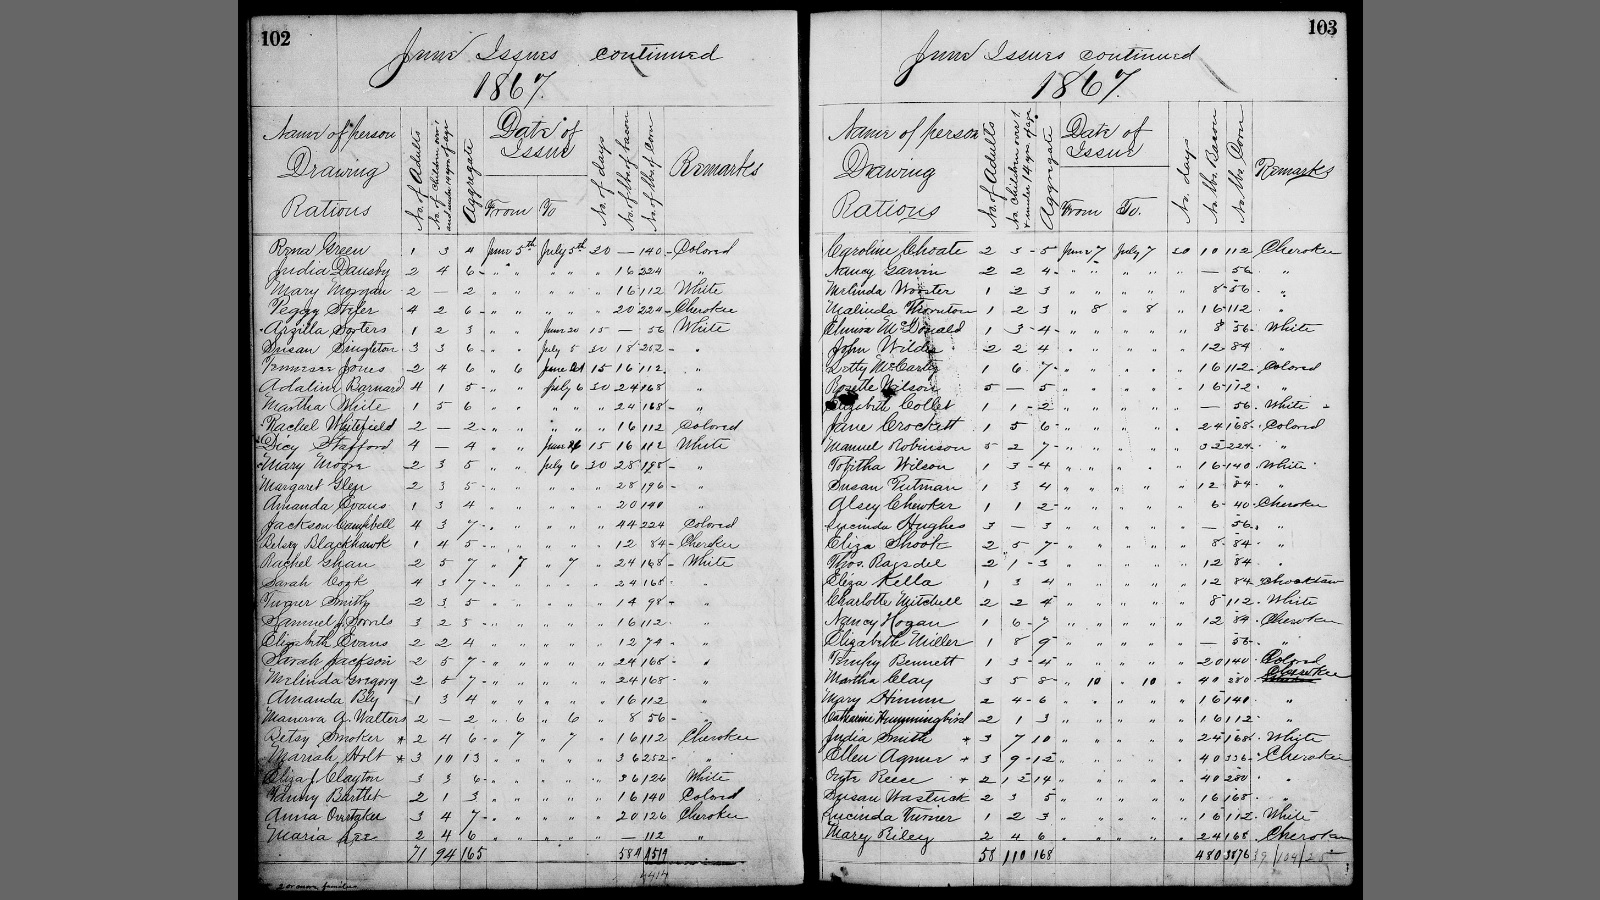 102
June Issues continued
1867.
Name of person Drawing Rations | No. of Adults | No. of children over 1 and under 14 yrs of age | Aggregate | Date of Issue From To | No. of days | No. of lbs of bacon | No. of lbs of corn | Remarks
Green 1 3 4 June 5th July 5th 30 — 140 Colored
India Dansby 2 4 6 " " " " " 16 224 "
Mary Morgan 2 — 2 " " " " " 16 112 White
Peggy Stiler 4 2 6 " " " " " 20 224 Cherokee
Arzilla Sorters 1 2 3 " " June 20 15 — 56 White
Susan Singleton 3 3 6 " " July 5 30 18 252 "
Jones 2 4 6 " 6 June 21 15 16 112 "
Adaline Barnard 4 1 5 " " July 6 30 24 168 "
Martha White 1 5 6 " " " " " 24 168 "
Rachel Whitefield 2 — 2 " " " " " 16 112 Colored
Dicy Stafford 4 — 4 " " June 21 15 16 112 White
Mary Moore 2 3 5 " " July 6 30 28 "
Margaret Glen 2 3 5 " " " " " 28 196 "
Amanda Evans 1 3 4 " " " " " 20 140 "
Jackson Campbell 4 3 7 " " " " " 44 224 Colored
Betsy Blackhawk 1 4 5 " " " " " 12 84 Cherokee
Rachel Ghan 2 5 7 " 7 " 7 " 24 168 White
Sarah Cook 4 3 7 " " " " " 24 168 "
Turner Smith 2 3 5 " " " " " 14 98 "
Samuel J. 3 2 5 " " " " " 16 112 "
Elizabeth Evans 2 2 4 " " " " " 12 74 "
Sarah Jackson 2 5 7 " " " " " 24 168 "
Melinda Gregory 2 5 7 " " " " " 24 168 "
Amanda Bly 1 3 4 " " " " " 16 112 "
Manerva A. Walters 2 — 2 " 6 " 6 " 8 56 "
Betsy Smoker * 2 4 6 " 7 " 7 " 16 112 Cherokee
Mariah Holt * 3 10 13 " " " " " 36 252 "
Eliza J. Clayton 3 3 6 " " " " " 36 126 White
Fanny Bartlet 2 1 3 " " " " " 16 140 Colored
Anna Overtaker 3 4 7 " " " " " 20 126 Cherokee
Maria 2 4 6 " " " " " — 112 "
71 94 165 584 4519
4414
2 or more families
103
June Issues continued
1867.
Name of person Drawing Rations | No. of Adults | No. Children over 1 & under 14 yrs. of age | Aggregate | Date of Issue From To. | No. days | No. lbs. Bacon | No. lbs. Corn | Remarks
Caroline Choate 2 3 5 June 7 July 7 30 10 112 Cherokee
Nancy Garvin 2 2 4 " " " " " — 56 "
Melinda Wooster 1 2 3 " " " " " 8 56 "
Malinda Thornton 1 2 3 " 8 " 8 " 16 112 "
McDonald 1 3 4 " " " " " 8 56 White
John Wilds 2 2 4 " " " " " 12 84 "
Letty McCarty 1 6 7 " " " " " 16 112 Colored
Rosette Wilson 5 — 5 " " " " " 16 112 "
Elizabeth Collet 1 1 2 " " " " " — 56 White
Jane Crockett 1 5 6 " " " " " 24 168 Colored
Manuel Robinson 5 2 7 " " " " " 32 224 "
Tobitha Wilson 1 3 4 " " " " " 16 140 White
Susan Putman 1 3 4 " " " " " 12 84 "
Alsey Chewker 1 1 2 " " " " " 6 40 Cherokee
Lucinda Hughes 3 — 3 " " " " " — 56 "
Eliza Shook 2 5 7 " " " " " 8 84 "
Thos. Ragsdel 2 1 3 " " " " " 12 84 "
Eliza Kella 1 3 4 " " " " " 12 84 Chocktaw
Charlotte Mitchell 2 2 4 " " " " " 8 112 White
Nancy Hogan 1 6 7 " " " " " 12 84 Cherokee
Elizabeth Miller 1 8 9 " " " " " — 56 "
Bennett 1 3 4 " " " " " 20 140 Colored
Martha Clay 3 5 8 " 10 " 10 " 40 280 Cherokee
Mary 2 4 6 " " " " " 16 140 "
Catharine Hummingbird 2 1 3 " " " " " 16 112 "
India Smith * 3 7 10 " " " " " 24 168 White
Ellen Agnew * 3 9 12 " " " " " 40 336 Cherokee
Reese * 2 12 14 " " " " " 40 280 "
Susan Wastuck 2 3 5 " " " " " 16 168 "
Lucinda Turner 1 2 3 " " " " " 16 112 White
Mary Riley 2 4 6 " " " " " 24 168 Cherokee
58 110 168 480 3876